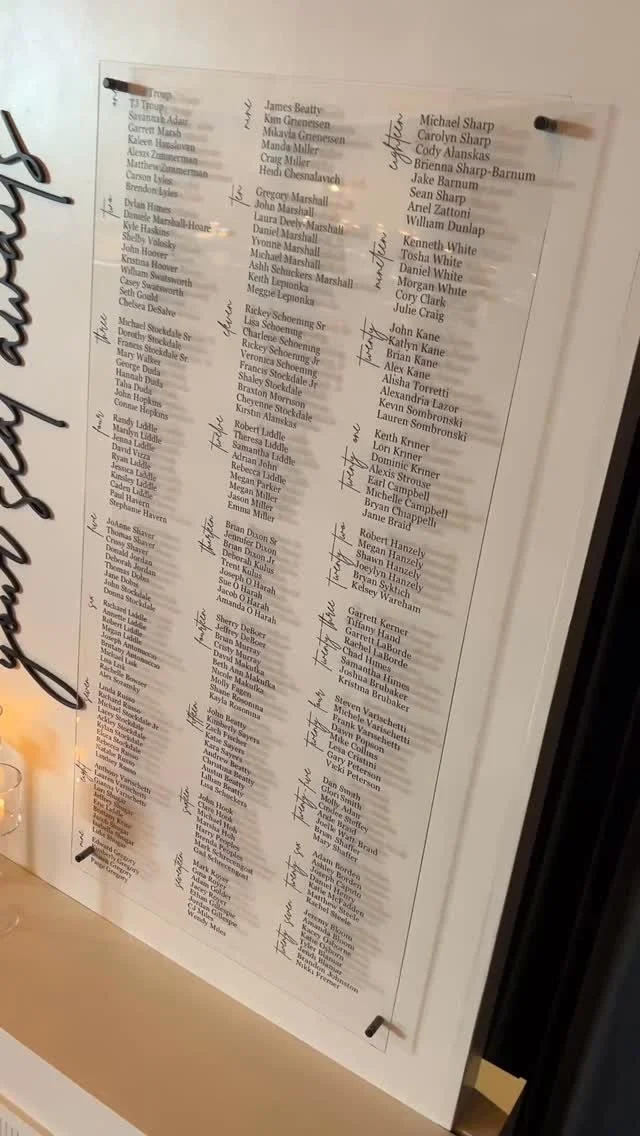 your seat awaits
one
Troup
TJ Troup
Savannah Adair
Garrett Marsh
Kaleen Hanslovan
Alexis Zimmerman
Matthew Zimmerman
Carson Lyles
Brendon Lyles
two
Dylan Himes
Daniele Marshall-Hoare
Kyle Haskins
Shelby Volosky
John Hoover
Kristina Hoover
William Swatsworth
Casey Swatsworth
Seth Gould
Chelsea DeSalve
three
Michael Stockdale Sr
Dorothy Stockdale
Francis Stockdale Sr
Mary Walker
George Duda
Hannah Duda
Talia Duda
John Hopkins
Connie Hopkins
four
Randy Liddle
Marilyn Liddle
Jenna Liddle
David Vizza
Ryan Liddle
Jessica Liddle
Kinsley Liddle
Caden Liddle
Paul Havern
Stephanie Havern
five
JoAnne Shaver
Thomas Shaver
Crissy Shaver
Donald Jordan
Deborah Jordan
Thomas Dobis
Jane Dobis
John Stockdale
Donna Stockdale
six
Richard Liddle
Annette Liddle
Robert Liddle
Megan Liddle
Joseph Antonuccio
Brittany Antonuccio
Michael Luik
Lisa Luik
Rachelle Bowser
Alex Soransky
seven
Linda Russo
Richard Russo
Michael Stockdale Jr
Johny Stockdale
Ackley Stockdale
Rylan Stockdale
Rebecca Russo
Lindsey Russo
eight
Anthony Varischetti
Lauren Varischetti
nine
Edward Gregory
Gregory
Paige Gregory
nine
James Beatty
Kim Grieneisen
Mikayla Grieneisen
Manda Miller
Craig Miller
Heidi Chesnalavich
ten
Gregory Marshall
John Marshall
Laura Deely-Marshall
Daniel Marshall
Yvonne Marshall
Michael Marshall
Ashli Schuckers Marshall
Keith Lepionka
Meggie Lepionka
eleven
Rickey Schoening Sr
Lisa Schoening
Charlene Schoening
Rickey Schoening Jr
Veronica Schoening
Francis Stockdale Jr
Shaley Stockdale
Braxton Morrison
Cheyenne Stockdale
Kirstin Alanskas
twelve
Robert Liddle
Theresa Liddle
Samantha Liddle
Adrian John
Rebecca Liddle
Megan Parker
Megan Miller
Jason Miller
Emma Miller
thirteen
Brian Dixon Sr
Jennifer Dixon
Brian Dixon Jr
Deborah Kulus
Trent Kulus
Joseph O Harah
Sue O Harah
Jacob O Harah
Amanda O Harah
fourteen
Sherry DeBoer
Jeffrey DeBoer
Brian Murray
Cristy Murray
David Makufka
Beth Ann Makufka
Nicole Makufka
Molly Fagen
Shane Rosomina
Kayla Rosomina
fifteen
John Beatty
Kimberly Sayers
Zach Fischer
Katie Sayers
Kara Sayers
Andrew Beatty
Christina Beatty
Austin Beatty
Lillian Beatty
Lisa Schockers
sixteen
John Hook
Clara Hook
Michael Hoh
Marsha Hoh
Harry Peoples
Mynda Peoples
Mark Schrecengost
Gail Schrecengost
seventeen
Mark Royer
Gina Royer
Adam Guider
Jacey Royer
Ethan Gillespie
Jordan Gillespie
CJ Miles
Wendy Miles
eighteen
Michael Sharp
Carolyn Sharp
Cody Alanskas
Brienna Sharp-Barnum
Jake Barnum
Sean Sharp
Ariel Zattoni
William Dunlap
nineteen
Kenneth White
Tosha White
Daniel White
Morgan White
Cory Clark
Julie Craig
twenty
John Kane
Katlyn Kane
Brian Kane
Alex Kane
Alisha Torretti
Alexandria Lazor
Kevin Sombronski
Lauren Sombronski
twenty one
Keith Kriner
Lori Kriner
Dominic Kriner
Alexis Strouse
Earl Campbell
Michelle Campbell
Bryan Chiappelli
Janie Braid
twenty two
Robert Hanzely
Megan Hanzely
Shawn Hanzely
Joeylyn Hanzely
Bryan Syktich
Kelsey Wareham
twenty three
Garrett Kerner
Tiffany Hand
Garrett LaBorde
Rachel LaBorde
Chad Himes
Samantha Himes
Joshua Brubaker
Kristina Brubaker
twenty four
Steven Varischetti
Michele Varischetti
Frank Varischetti
Dawn Popson
Mike Collins
Lesa Cristini
Gary Peterson
Vicki Peterson
twenty five
Dan Smith
Glori Smith
Molly Adair
Emilee Steffey
Andie Braid
Joelle Watt Braid
Brian Shaffer
Mary Shaffer
twenty six
Adam Borden
Ashley Borden
Joseph Caputo
Daniel Henry
Katie McFadden
Matthew Steele
Rachel Steele
twenty seven
Jeremy Bloom
Amanda Bloom
Kacey Osborne
Katie Osborn
Tyler Bismar
Jenili Bismar
Brandon Johnston
Nikki Fremer